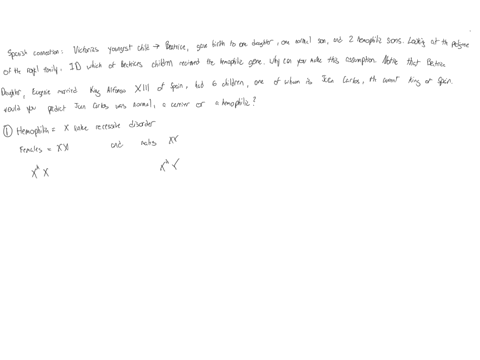 Spanish connection: Victoria's youngest child → Beatrice, gave birth to one daughter, one normal son, and 2 hemophilic sons. Looking at the pedigree
of the royal family. ID which of Beatrice's children received the hemophilic gene. Why can you make this assumption. Note that Beatrice
Daughter, Eugenie married King Alfonso XIII of Spain, had 6 children, one of whom is Juan Carlos, the current King of Spain.
would you predict Juan Carlos was normal, a carrier or a hemophilic?
① Hemophilia = X linked recessive disorder
Females = XX and males XY
XʰX XʰY